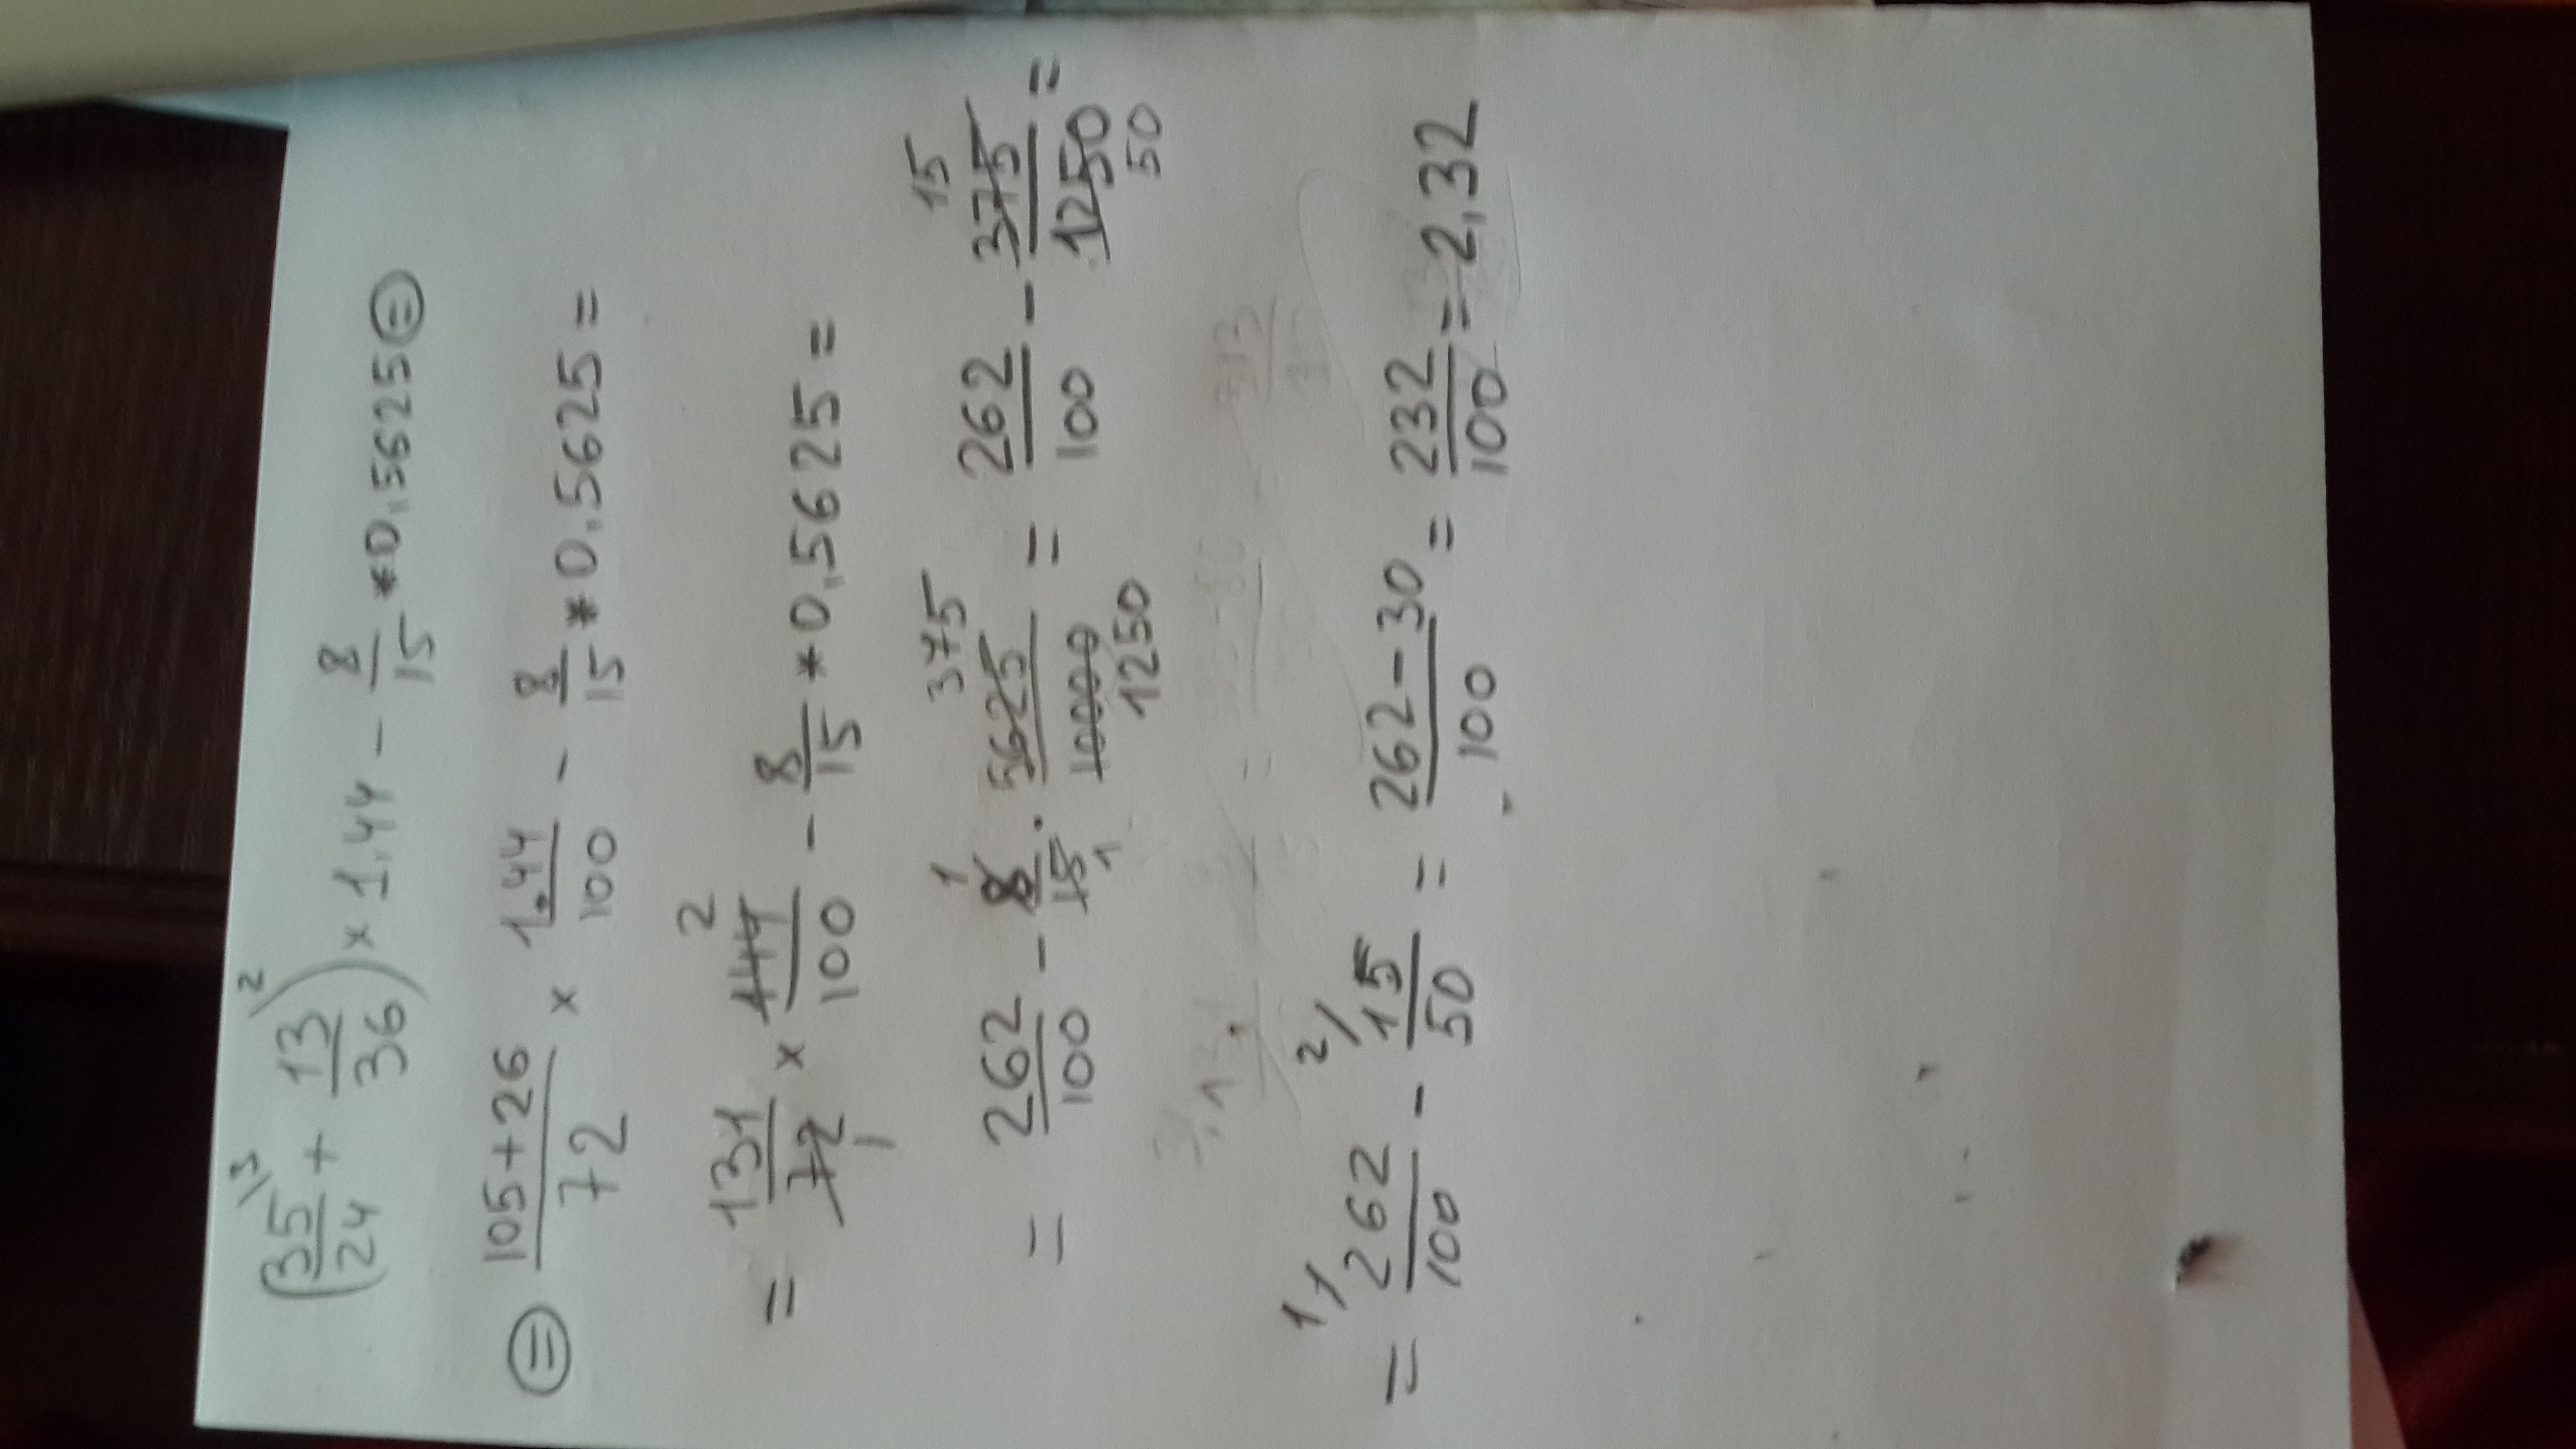 (35/24 \3 + 13/36 \2) × 1,44 - 8/15 * 0,5625 =
= 105+26/72 × 1.44/100 - 8/15 * 0,5625 =
= 131/72 1 × 144/100 2 - 8/15 * 0,5625 =
= 262/100 - 8/15 1 1 · 5625/10000 3475 1250 = 262/100 - 3775/1250 15 50 =
= 1/ 262/100 - 2/ 15/50 = 262-30/100 = 232/100 = 2,32